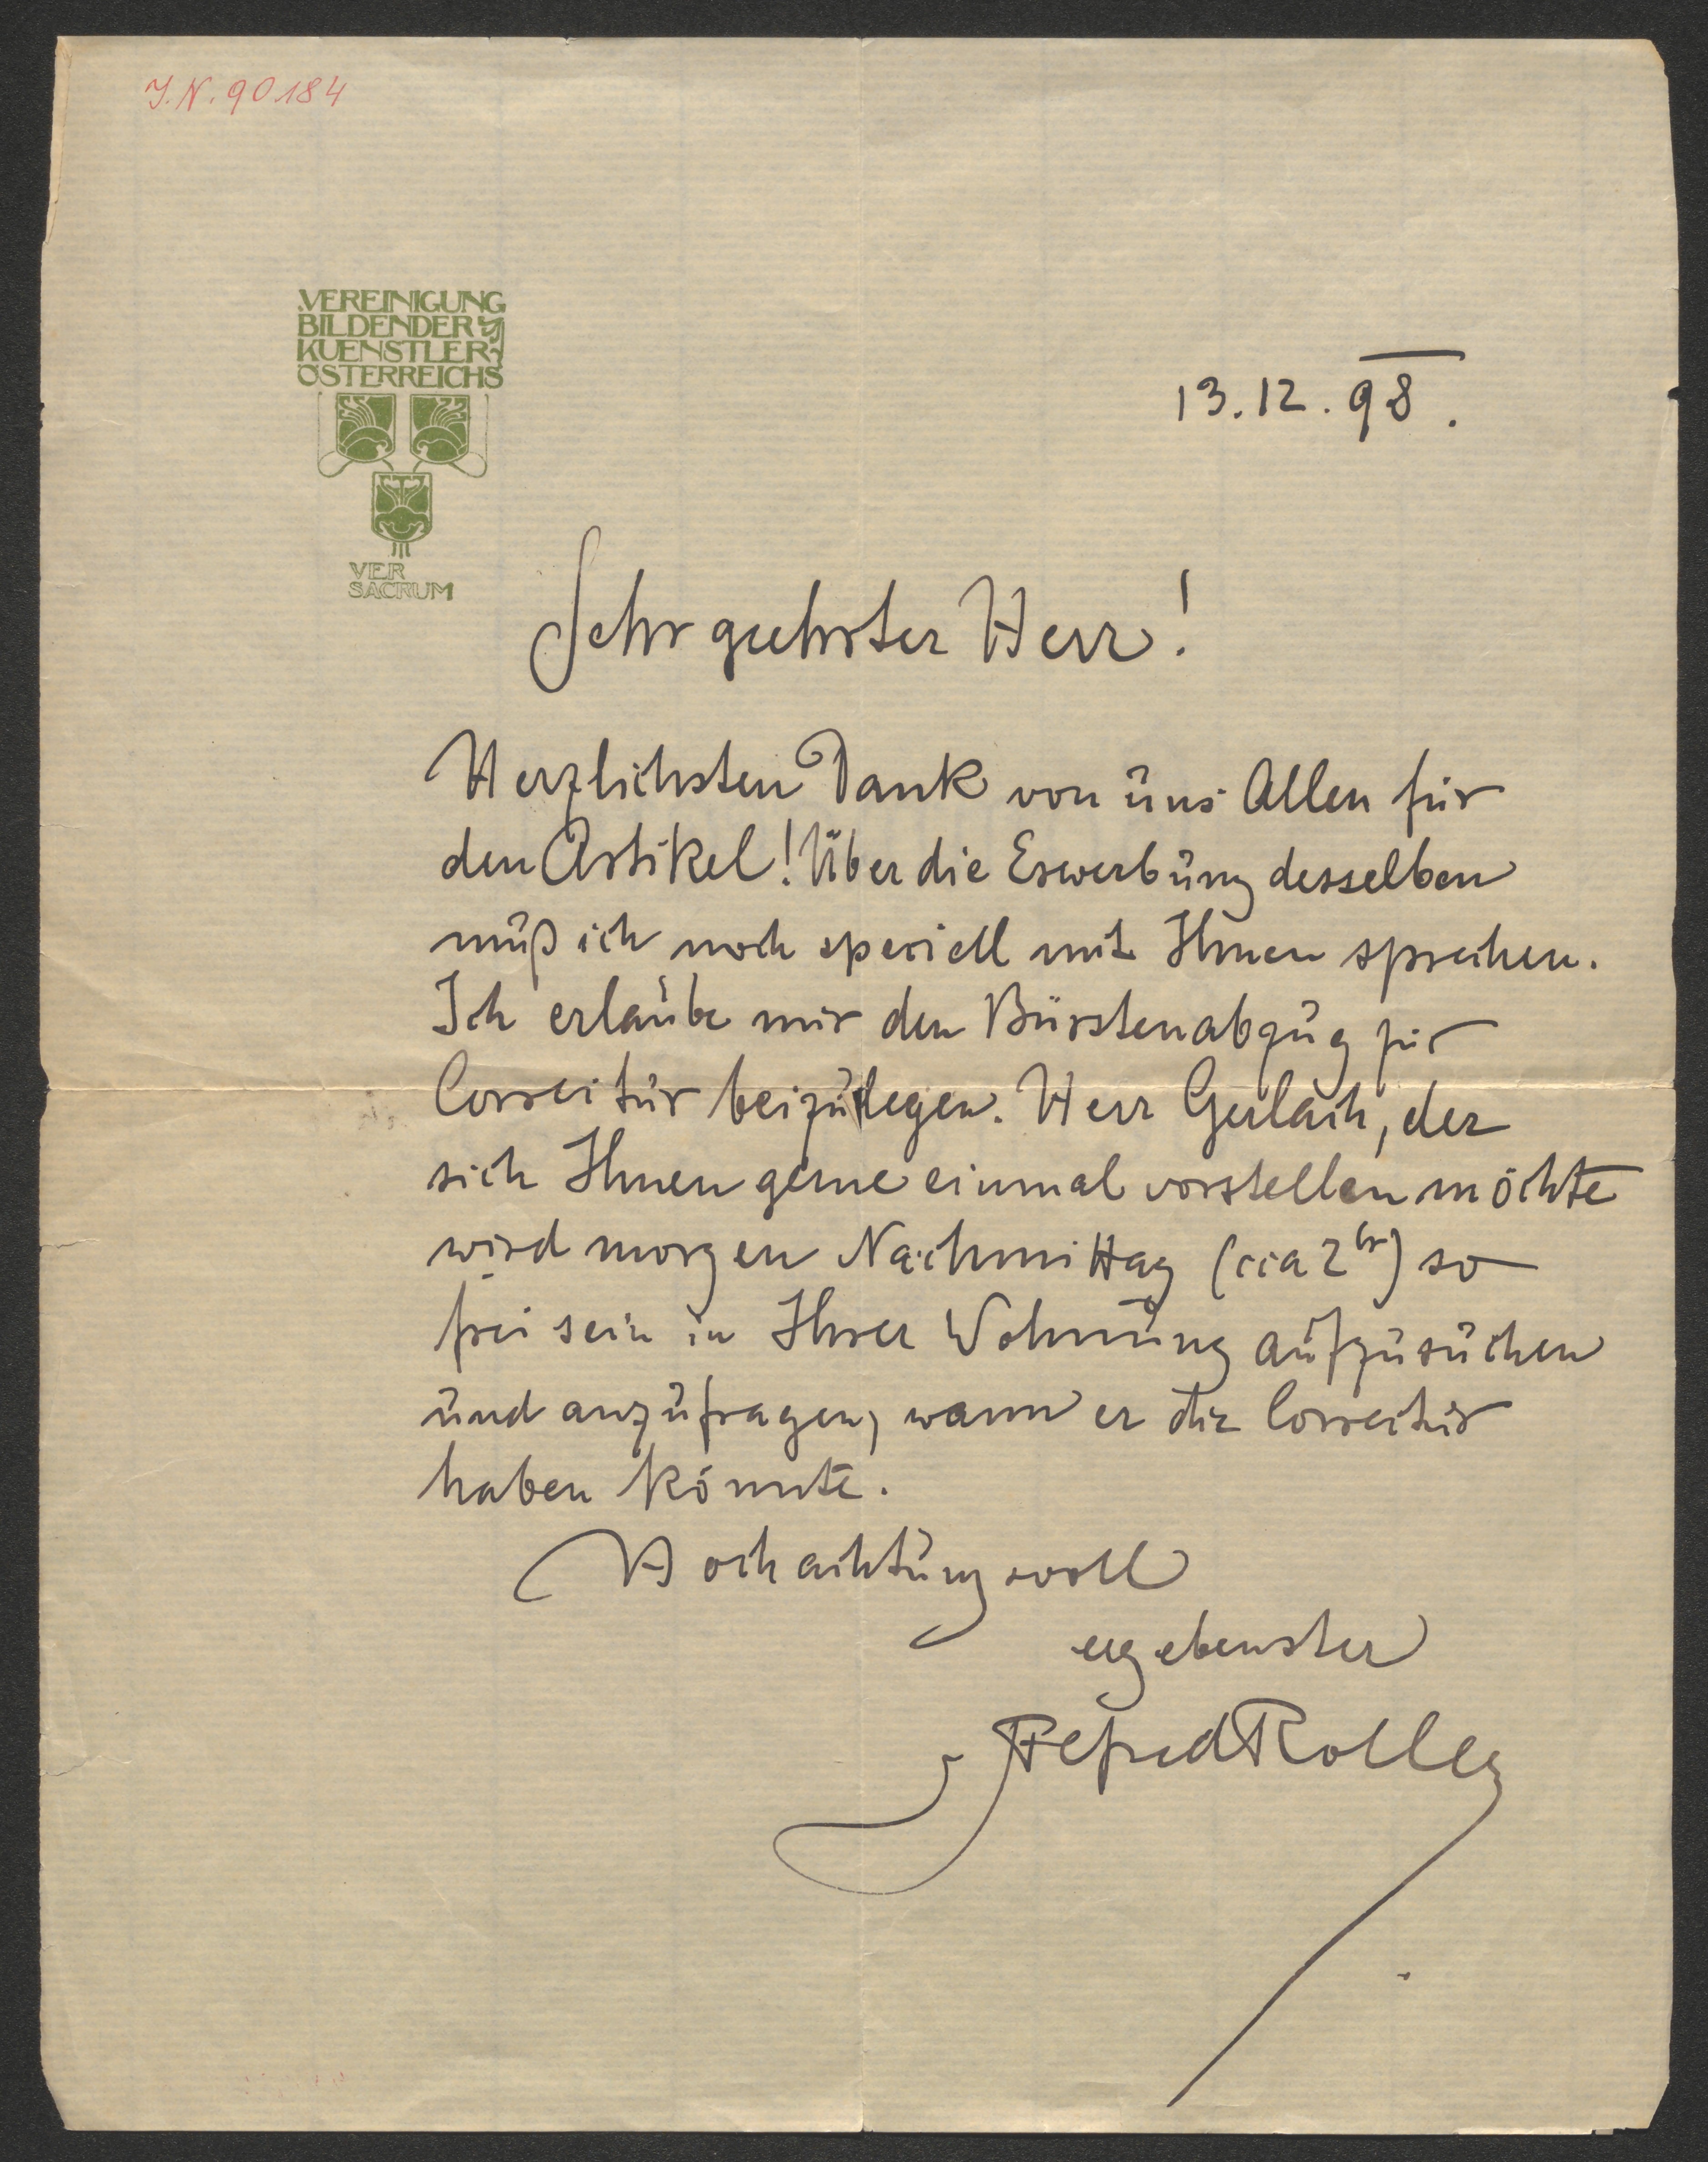 J.N. 90.184
VEREINIGUNG
BILDENDER
KUENSTLER
ÖSTERREICHS
VER
SACRUM
13.12.98.
Sehr geehrter Herr!
Herzlichsten Dank von uns Allen für
den Artikel! Über die Erwerbung desselben
muß ich noch speciell mit Ihnen sprechen.
Ich erlaube mir den Bürstenabzug zur
Correctur beizulegen. Herr Gerlach, der
sich Ihnen gerne einmal vorstellen möchte
wird morgen Nachmittag (cca 2 hr) so
frei sein in Ihrer Wohnung aufzusuchen
und anzufragen, wann er die Correctur
haben könnte.
Hochachtungsvoll
ergebenster
Alfred Roller